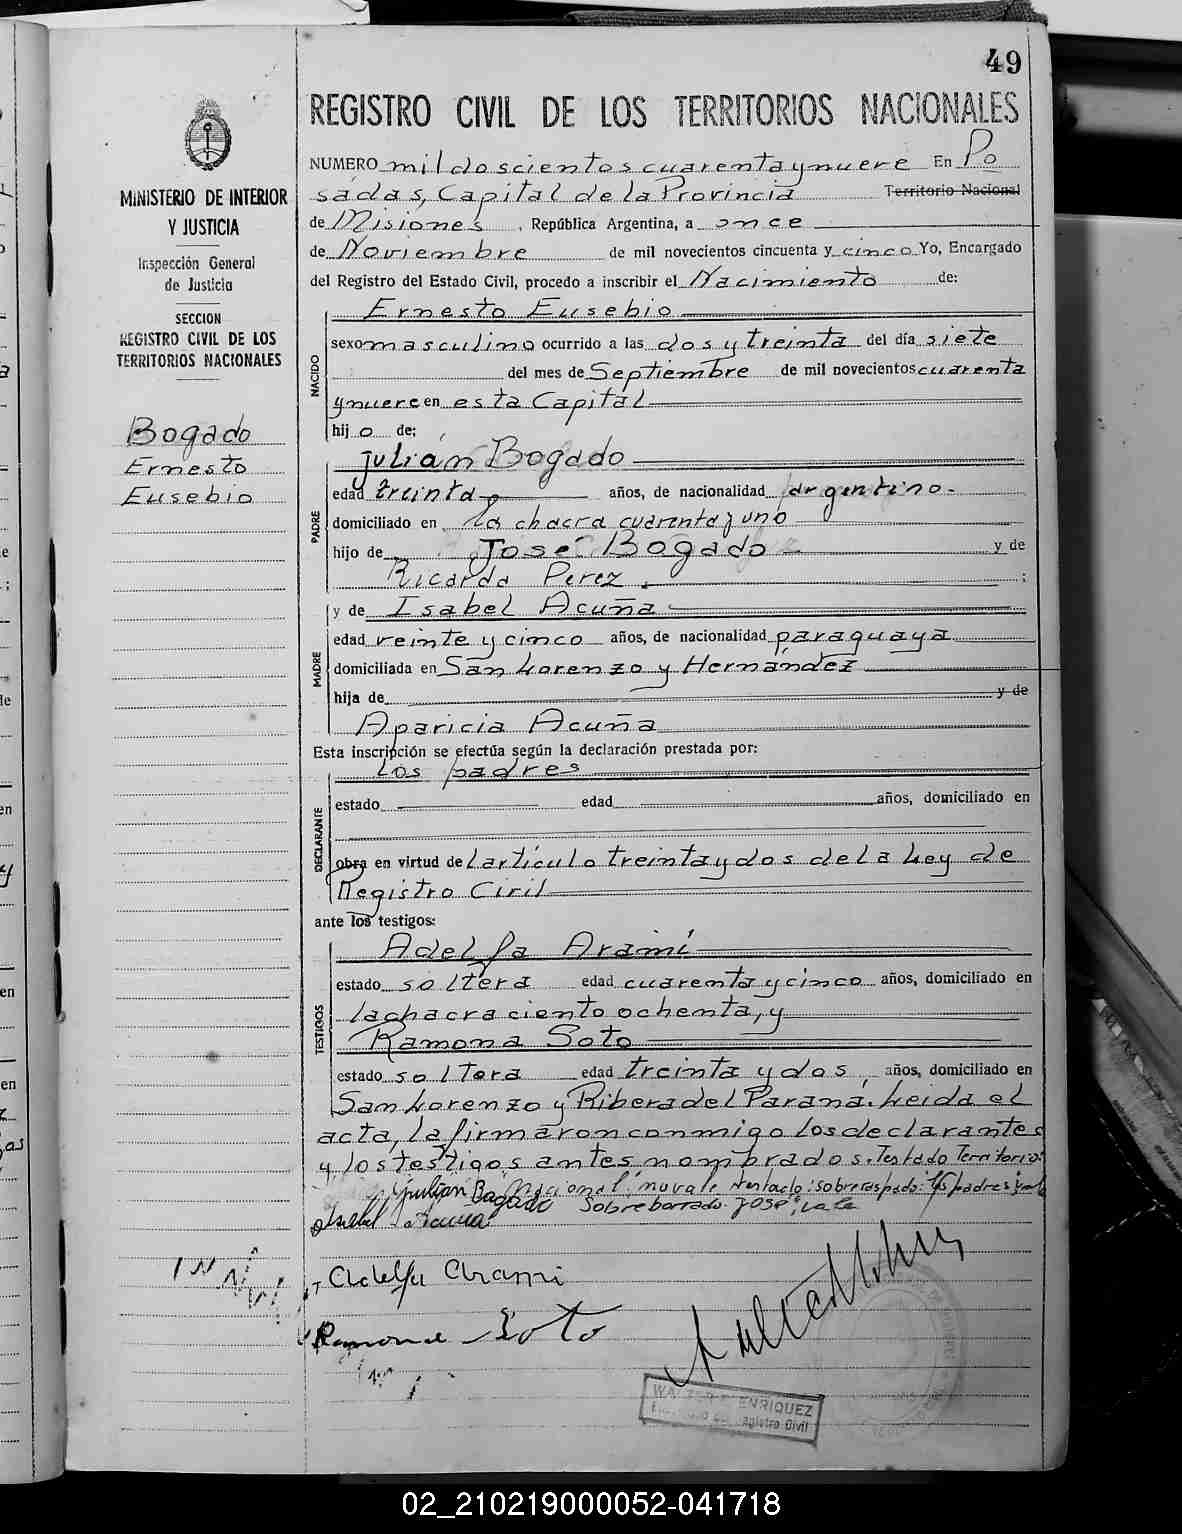 49
REGISTRO CIVIL DE LOS TERRITORIOS NACIONALES
MINISTERIO DE INTERIOR
Y JUSTICIA
Inspección General
de Justicia
SECCION
REGISTRO CIVIL DE LOS
TERRITORIOS NACIONALES
Bogado
Ernesto
Eusebio
NUMERO mil doscientos cuarenta y nueve En Po
sadas, Capital de la Provincia Territorio Nacional
de Misiones, República Argentina, a once
de Noviembre de mil novecientos cincuenta y cinco Yo, Encargado
del Registro del Estado Civil, procedo a inscribir el Nacimiento de:
NACIDO
Ernesto Eusebio
sexo masculino ocurrido a las dos y treinta del día siete
del mes de Septiembre de mil novecientos cuarenta
y nueve en esta Capital
hijo de:
PADRE
Julián Bogado
edad treinta años, de nacionalidad argentino.
domiciliado en la chacra cuarenta y uno
hijo de José Bogado y de
Ricarda Perez ;
MADRE
y de Isabel Acuña
edad veinte y cinco años, de nacionalidad paraguaya
domiciliada en San Lorenzo y Hernández
hija de y de
Aparicia Acuña
Esta inscripción se efectúa según la declaración prestada por:
DECLARANTE
los padres
estado edad años, domiciliado en
obra en virtud del artículo treinta y dos de la Ley de
Registro Civil
ante los testigos:
TESTIGOS
Adelfa Aramí
estado soltera edad cuarenta y cinco años, domiciliado en
la chacra ciento ochenta, y
Ramona Soto
estado soltera edad treinta y dos, años, domiciliado en
San Lorenzo y Ribera del Paraná. Leída el
acta, la firmaron conmigo los declarantes
y los testigos antes nombrados. Testado Territorio
Nacional, no vale testado: sobreraspado: los padres
Julian Bogado Sobreborrado: José, vale
Isabel Acuña
Adelfa Arami
Ramona Soto
WALTER ENRIQUEZ
Registro Civil
02_210219000052-041718